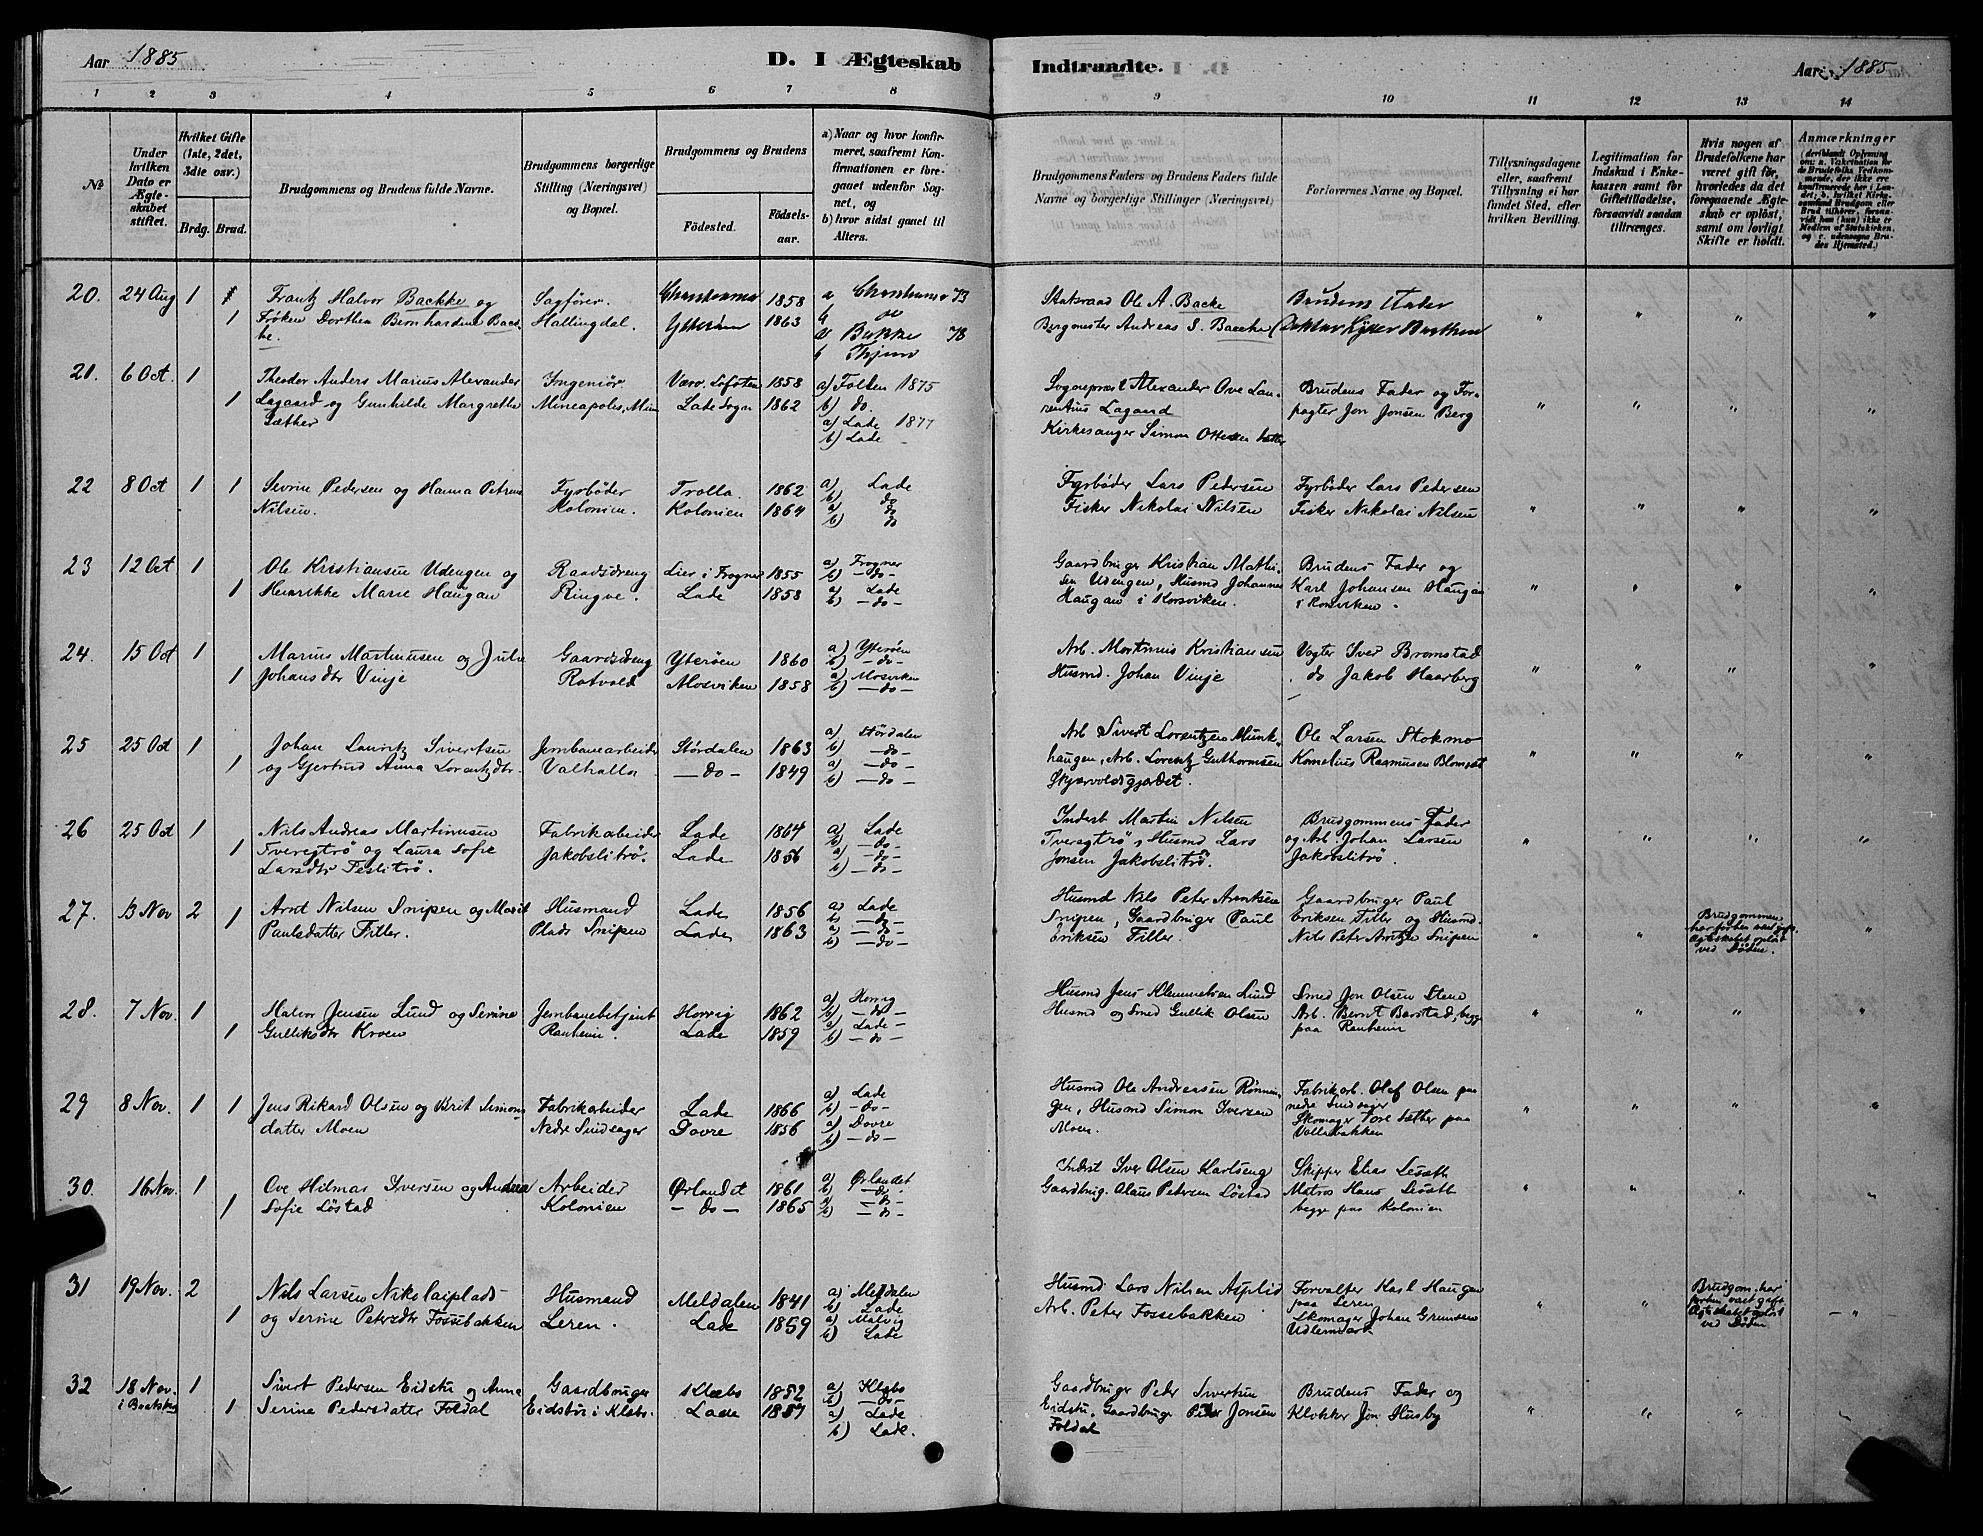 Aar 1885
D. I Ægteskab Indtraadte.
Aar 1885
1 2 3 4 5 6 7 8 9 10 11 12 13 14
No
Under hvilken Dato er Ægteskabet stiftet.
Hvilket Gifte (1ste, 2det, 3die osv.)
Brdg. Brud.
Brudgommens og Brudens fulde Navne.
Brudgommens borgerlige Stilling (Næringsvei) og Bopæl.
Brudgommens og Brudens
Fødested.
Fødselsaar.
a) Naar og hvor konfirmeret, saafremt Konfirmationen er foregaaet udenfor Sognet, og
b) hvor sidst ganet til Alters.
Brudgommens Faders og Brudens Faders fulde Navne og borgerlige Stillinger (Næringsvei)
Forlovernes Navne og Bopæl.
Tillysningsdagene eller, saafremt Tillysning ei har fundet Sted, efter hvilken Bevilling.
Legitimation for Indskud i Enkekassen samt for Giftetilladelse, forsaavidt saadan tiltrænges.
Hvis nogen af Brudefolkene har været gift før, hvorledes da det foregaaende Ægteskab er opløst, samt om lovligt Skifte er holdt.
Anmærkninger
20. 24 Aug 1 1 Frantz Halvor Backke og Frøken Dorthea Bernhardine Backe.
Sagfører. Hallingdal.
Christiania 1858
Ytterøen 1863
a Christiania 73
b do
a Bakke 78
b
Statsraad Ole A. Backe
Bergmester Andreas S. Bacche
Brudens Fader
21. 6 Oct. 1 1 Theodor Anders Marius Alexander Lagaard og Gunhilde Margrethe Sæther
Ingeniør. Mineapolis, Min
Værø. Lofoten 1858
Lade Sogn 1862
a) Folden 1875
b) do.
a) Lade 1877
b) Lade
Sognepræst Alexander Ove Laurentius Lagaard
Kirkesanger Simon Ottesen Sæther
Brudens Fader og Forpagter Jon Jonsen Berg
22 8 Oct 1 1 Sevrin Pedersen og Hanna Petrine Nilsen.
Fyrbøder Kolonien.
Trolla. 1862
Kolonien 1864
a) Lade
b) do
a) do
b) do
Fyrbøder Lars Pedersen
Fisker Nikolai Nilsen
Fyrbøder Lars Pedersen
Fisker Nikolai Nilsen
23 12 Oct 1 1 Ole Kristiansen Udengen og Henrikke Marie Haugan
Raadsdreng Ringve.
Lier i Frogner 1855
Lade 1858
a) Frogner
b) – do –
a) Lade
b) – do –
Gaardbruger Kristian Mathisen Udengen, Husmd Johannes Haugan i Korsviken.
Brudens Fader og Karl Johansen Haugan i Korsviken.
24. 15 Oct 1 1 Marius Martinusen og Julie Johansdtr Vinje
Gaardsdreng Rotvold
Yterøen 1860
Mosviken 1858
a) Yterøen
b) – do –
a) Mosviken
b) – do –
Arb. Martinus Kristiansen
Husmd. Johan Vinje
Vogter Iver Bromstad
do Jakob Haarberg
25 25 Oct 1 1 Johan Lauritz Sivertsen og Gjertrud Anna Lorentzdtr.
Jernbanearbeider Valhalla
Størdalen 1863
– do – 1849
a) Størdalen
b) – do –
a) – do –
b) – do –
Arb Sivert Lorentzen Munkhaugen, Arb. Lorentz Guthormsen Skjærvoldsgjerdet.
Ole Larsen Stokmo
Kornelius Rasmusen Blomset
26 25 Oct 1 1 Nils Andreas Martinusen Tveregtrø og Laura Sofie Larsdtr Teslitrø.
Fabrikarbeider Jakobslitrø.
Lade 1864
Lade 1856
a) Lade
b) – do –
a) – do –
b) – do –
Inderst Martin Nilsen Tveregtrø, Husmd Lars Jonsen Jakobslitrø.
Brudgommens Fader og Arb Johan Larsen Jakobslitrø.
27. 13 Nov 2 1 Arnt Nilsen Snipen og Marit Paulsdatter Tiller.
Husmand Plads Snipen
Lade 1856
Lade 1863
a) Lade
b) – do –
a) – do –
b) – do –
Husmd Nils Peter Arntsen Snipen, Gaardbruger Paul Eriksen Tiller.
Gaardbruger Paul Eriksen Tiller og Husmd. Nils Peter Arntzen Snipen
Brudgommen har forhen vært gift. Ægteskabet opløst ved Døden.
28. 7 Nov. 1 1 Halvor Jensen Lund og Serine Gulliksdtr Kroen
Jernbanebetjent Ranheim.
Horrig 1862
Lade 1859
a) Horrig
b) – do –
a) Lade –
b) – do –
Husmd Jens Klemmetsen Lund
Husmd og Smed Gullik Olsen
Smed Jon Olsen Stene
Arb. Bernt Barstad, begge paa Ranheim
29 8 Nov. 1 1 Jens Rikard Olsen og Brit Simonsdatter Moen
Fabrikarbeider Nedre Sundsager
Lade 1866
Dovre 1856
a) Lade
b) – do –
a) Dovre
b) – do –
Husmd Ole Andreasen Rønningen, Husmd Simon Iversen Moen.
Fabrikarb. Olaf Olsen paa nedre
Skomager Tore Sæther paa Vollabakken
30. 16 Nov. 1 1 Ove Hilmar Iversen og Andrea Sofie Løstad
Arbeider Kolonien
Ørlandet 1861
– do – 1865
a) Ørlandet
b) – do –
a) – do –
b) – do –
Inderst Iver Olsen Karlseng
Gaardbrug. Olaus Petersen Løstad
Skipper Elias Leseth
Matros Hans Leseth
begge paa Kolonien
31 19 Nov. 2 1 Nils Larsen Nikolaiplads og Serine Petersdtr Fossebakken
Husmand Leren.
Meldalen 1841
Lade 1859
a) Meldalen
b) Lade
a) Malvig
b) Lade
Husmd Lars Nilsen Asplid
Arb. Peter Fossebakken
Forvalter Karl Haugen paa Leren
Skomager Johan
Brudgom. har forhen vært gift. Ægteskabet opløst ved Døden
32 18 Nov. 1 1 Sivert Pedersen Eidstu og Anna Serine Pedersdatter Foldal
Gaardbruger Eidstu i Klæbo.
Klæbo 1852
Lade 1857
a) Klæbo
b) – do –
a) Lade
b) Lade.
Gaardbruger Peder Sivertsen Eidstu. Gaardbruger Peder Jonsen Foldal
Brudens Fader og Klokker Jon Husby